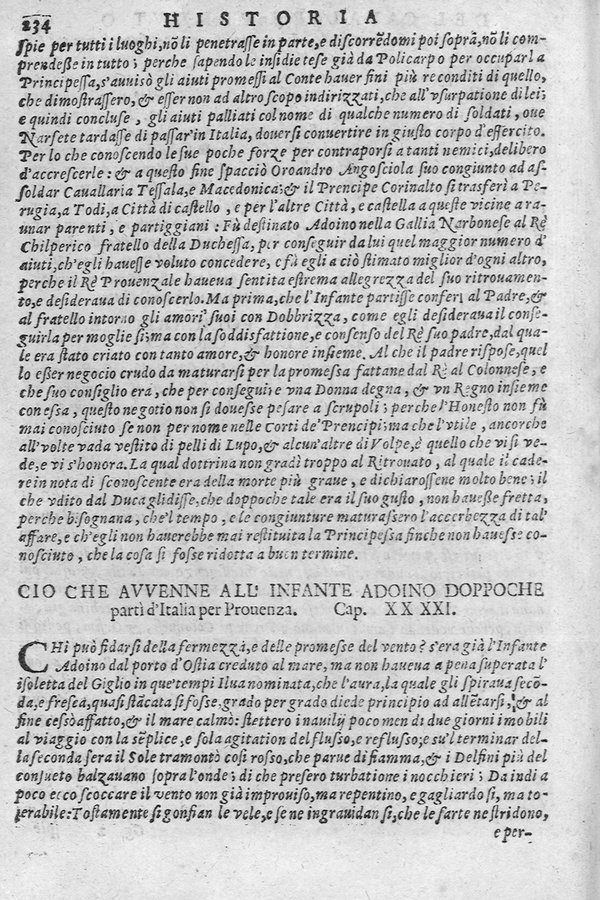 234 HISTORIA
spie per tutti i luoghi, nõ li penetrasse in parte, e discorrẽdomi poi soprà, nõ li com-
prendeße in tutto; perche sapendo le insidie tese già da Policarpo per occupar la
Principessa, s'auuisò gli aiuti promessi al Conte hauer fini più reconditi di quello,
che dimostrassero, & esser non ad altro scopo indirizzati, che all'vsurpatione di lei;
e quindi concluse, gli aiuti palliati col nome di qualche numero di soldati, oue
Narsete tardasse di passar in Italia, douersi conuertire in giusto corpo d'essercito.
Per lo che conoscendo le sue poche forze per contraporsi a tanti nemici, deliberò
d'accrescerle: & a questo fine spacciò Oroandro Angosciola suo congiunto ad as-
soldar Cauallaria Tessala, e Macedonica: & il Prencipe Corinalto si trasferì a Pe-
rugia, a Todi, a Città di castello, e per l'altre Città, e castella a queste vicine a ra-
unar parenti, e partiggiani: Fù destinato Adoino nella Gallia Narbonese al Rè
Chilperico fratello della Duchessa, per conseguir da lui quel maggior numero d'
aiuti, ch'egli hauesse voluto concedere, e fà egli a ciò stimato miglior d'ogni altro,
perche il Rè Prouenzale haueua sentita estrema allegrezza del suo ritrouamen-
to, e desideraua di conoscerlo. Ma prima, che l'Infante partisse conferì al Padre, &
al fratello intorno gli amori suoi con Dobbrizza, come egli desideraua il conse-
guirla per moglie sì; ma con la soddisfattione, e consenso del Rè suo padre, dal qua-
le era stato criato con tanto amore, & honore insieme. Al che il padre rispose, quel
lo eßer negocio crudo da maturarsi per la promessa fattane dal Rè al Colonnese, e
che suo consiglio era, che per conseguire vna Donna degna, & vn Regno insieme
con essa, questo negotio non si douesse pesare a scrupoli; perche l'Honesto non fù
mai conosciuto se non per nome nelle Corti de' Prencipi; ma che l'vtile, ancorche
all'volte vada vestito di pelli di Lupo, & alcun'altre di Volpe, è quello che vi si ve-
de, e vi s'honora. La qual dottrina non gradì troppo al Ritrouato, al quale il cade-
re in nota di sconoscente era della morte più graue, e dichiarossene molto bene; il
che vdito dal Duca gli disse, che doppoche tale era il suo gusto, non haueße fretta,
perche bisognana, che'l tempo, e le congiunture maturassero l'acerbezza di tal'
affare, e ch'egli non hauerebbe mai restituita la Principessa finche non hauesse co-
nosciuto, che la cosa si fosse ridotta a buon termine.
CIO CHE AVVENNE ALL' INFANTE ADOINO DOPPOCHE
partì d'Italia per Prouenza. Cap. XX XXI.
CHi può fidarsi della fermezza, e delle promesse del vento? s'era già l'Infante
Adoino dal porto d'Ostia creduto al mare, ma non haueua a pena superata l'
isoletta del Giglio in que' tempi Ilua nominata, che l'aura, la quale gli spiraua secõ-
da, e fresca, quasi stãcata si fosse, grado per grado diede principio ad allẽtarsi, & al
fine cessò affatto, & il mare calmò: stettero i nauilij poco men di due giorni immobili
al viaggio con la sẽplice, e sola agitation del flusso, e reflusso; e su'l terminar del-
la seconda sera il Sole tramontò così rosso, che parue di fiamma, & i Delfini più del
consueto balzauano sopra l'onde; di che presero turbatione i nocchieri; Da indi a
poco ecco scoccare il vento non già improuiso, ma repentino, e gagliardo sì, ma to-
lerabile: Tostamente si gonfian le vele, e se ne ingrauidan sì, che le sarte ne stridono,
e per-